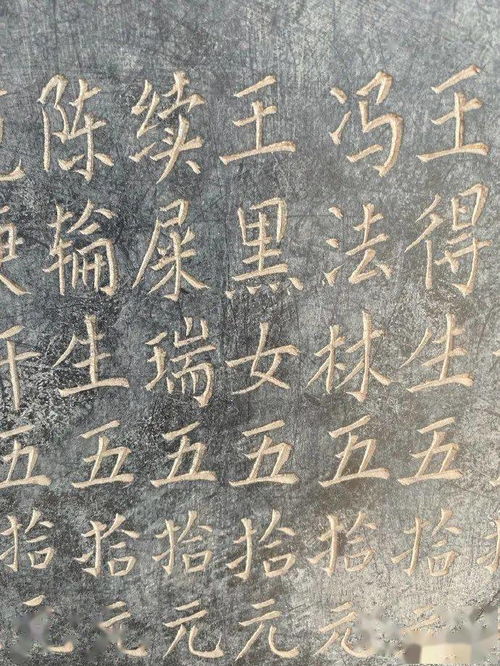 王得生五拾元
冯法林五拾元
王黑女五拾元
续屎瑞五拾元
陈輪生五拾元
五拾